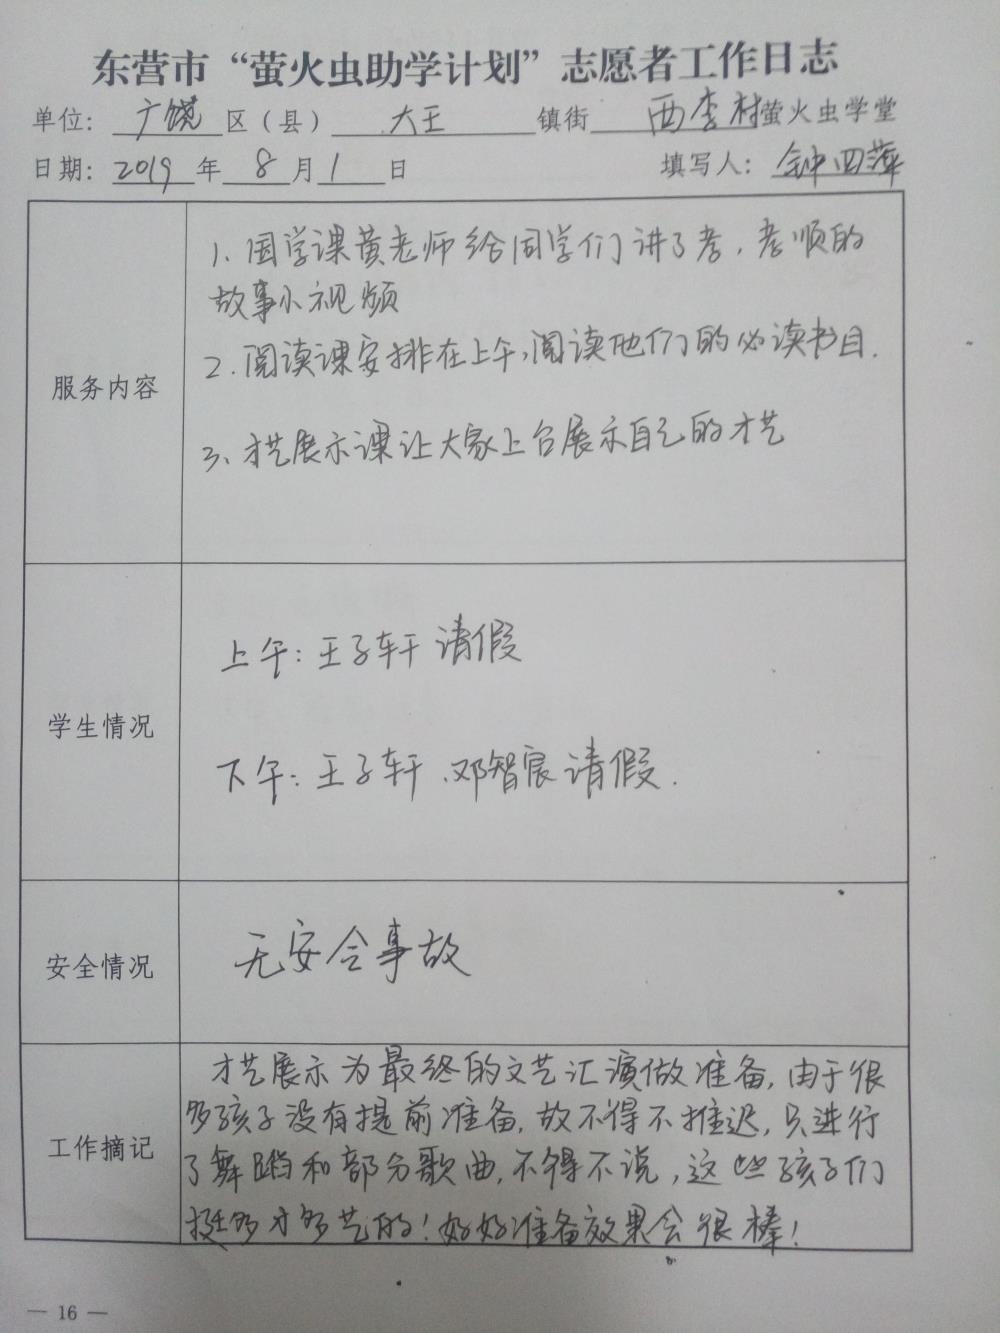 东营市“萤火虫助学计划”志愿者工作日志
单位：广饶区（县）大王镇街西李村萤火虫学堂
日期：2019年8月1日 填写人：钟四萍
服务内容
1、国学课黄老师给同学们讲了孝，孝顺的
故事小视频
2.阅读课安排在上午，阅读他们的必读书目.
3、才艺展示课让大家上台展示自己的才艺
学生情况
上午：王子轩请假
下午：王子轩、邓智宸请假.
安全情况
无安全事故
工作摘记
才艺展示为最终的文艺汇演做准备，由于很
多孩子没有提前准备，故不得不推迟，只进行
了舞蹈和部分歌曲，不得不说，这些孩子们
挺多才多艺的！好好准备效果会很棒！
— 16 —